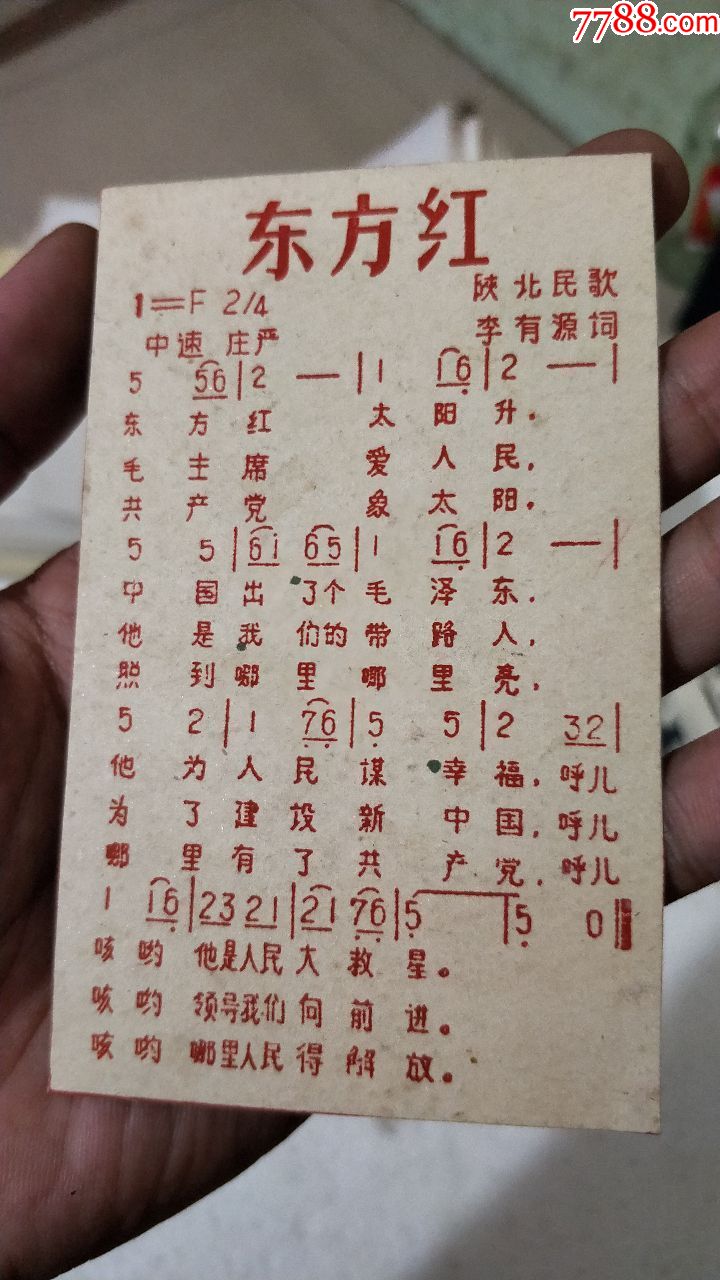 7788.com
东方红
1=F 2/4
陕北民歌
中速 庄严
李有源词
5 56|2 —|1 16|2 —|
东方红 太阳升。
毛主席 爱人民,
共产党 象太阳,
5 5|61 65|1 16|2 —|
中国出了个毛泽东.
他是我们的带路人,
照到哪里哪里亮,
5 2|1 76|5 5|2 32|
他为人民谋幸福,呼儿
为了建设新中国,呼儿
哪里有了共产党,呼儿
1 16|23 21|21 76|5|5 0‖
咳哟 他是人民大救星。
咳哟 领导我们向前进。
咳哟 哪里人民得解放。